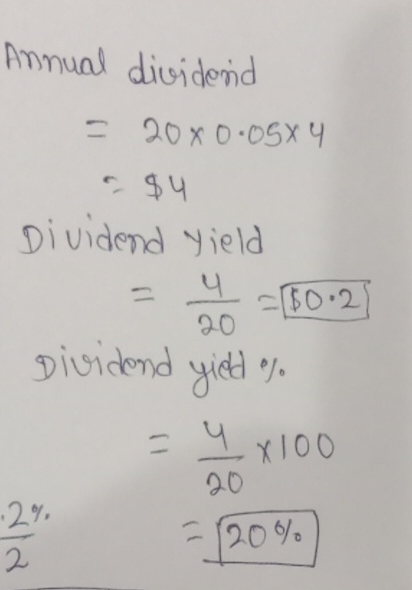 Annual dividend
= 20 x 0.05 x 4
= $4
Dividend yield
= 4/20 = $0.2
Dividend yield %
= 4/20 x 100
.2%/2
= 20%